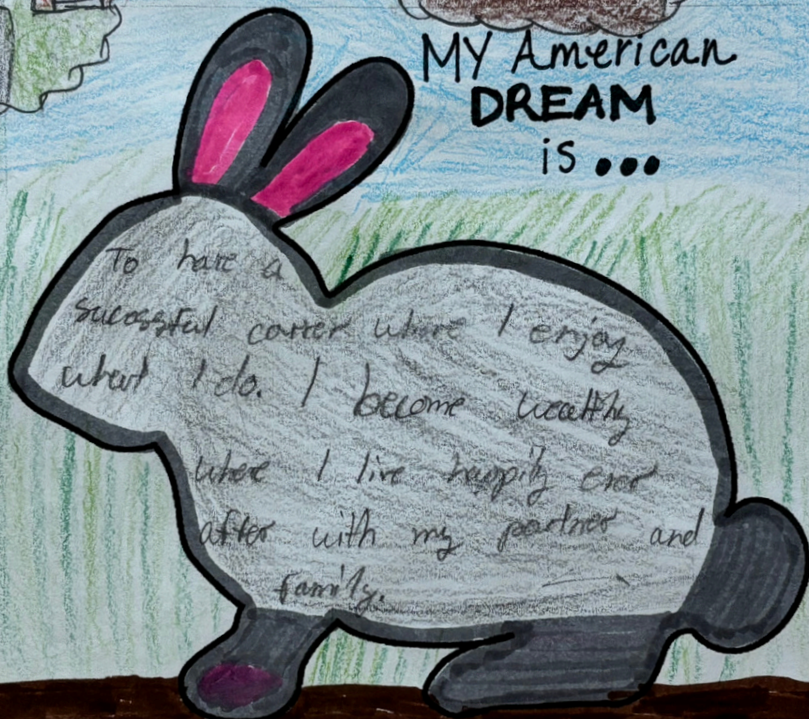 MY American
DREAM
is...
To have a
sucessful carrer where I enjoy
what I do. I become wealthy
where I live happily ever
after with my partner and
family.